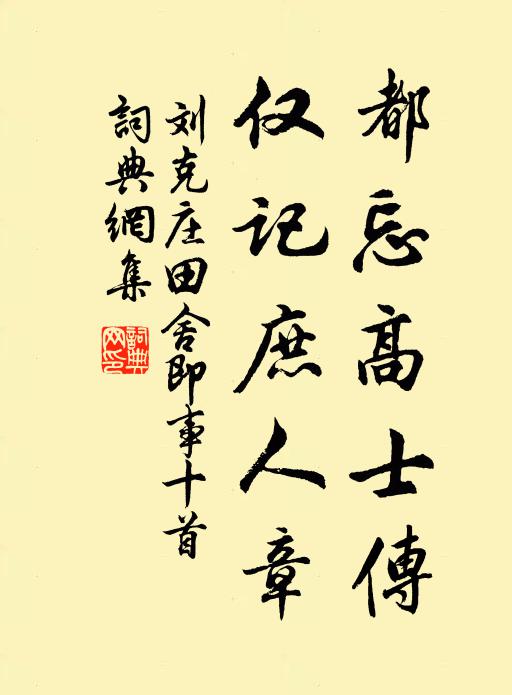 都忘高士傳
仅記庶人章
刘克庄田舍即事十首
詞典網集
詞典網印